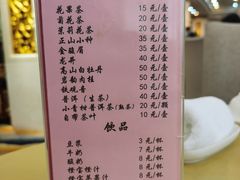 花果茶 15 元/壶
菊花茶 20 元/壶
茉莉花茶 20 元/壶
正山小种 35 元/壶
金骏眉 35 元/壶
龙井 40 元/壶
高山白牡丹 50 元/壶
岩韵肉桂 50 元/壶
铁观音 40 元/壶
普洱（生茶） 40 元/壶
小青柑普洱茶（熟茶） 20 元/颗
自带茶叶 10 元/壶
饮品
豆浆 3 元/杯
牛奶 7 元/杯
酸奶 8 元/杯
橙宝橙汁 8 元/杯